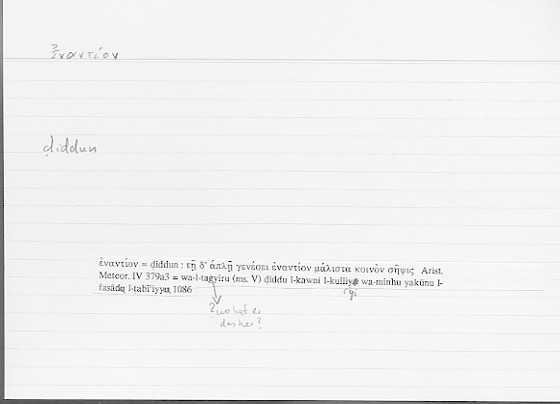 ἐναντίον
ḍiddun
ἐναντίον = ḍiddun : τῇ δ' ἁπλῇ γενέσει ἐναντίον μάλιστα κοινὸν σῆψις Arist.
Meteor. IV 379a3 = wa-l-taġyīru (ms. V) ḍiddu l-kawni l-kulliyi wa-minhu yakūnu l-
fasādu l-tabī'iyyu 1086
yi